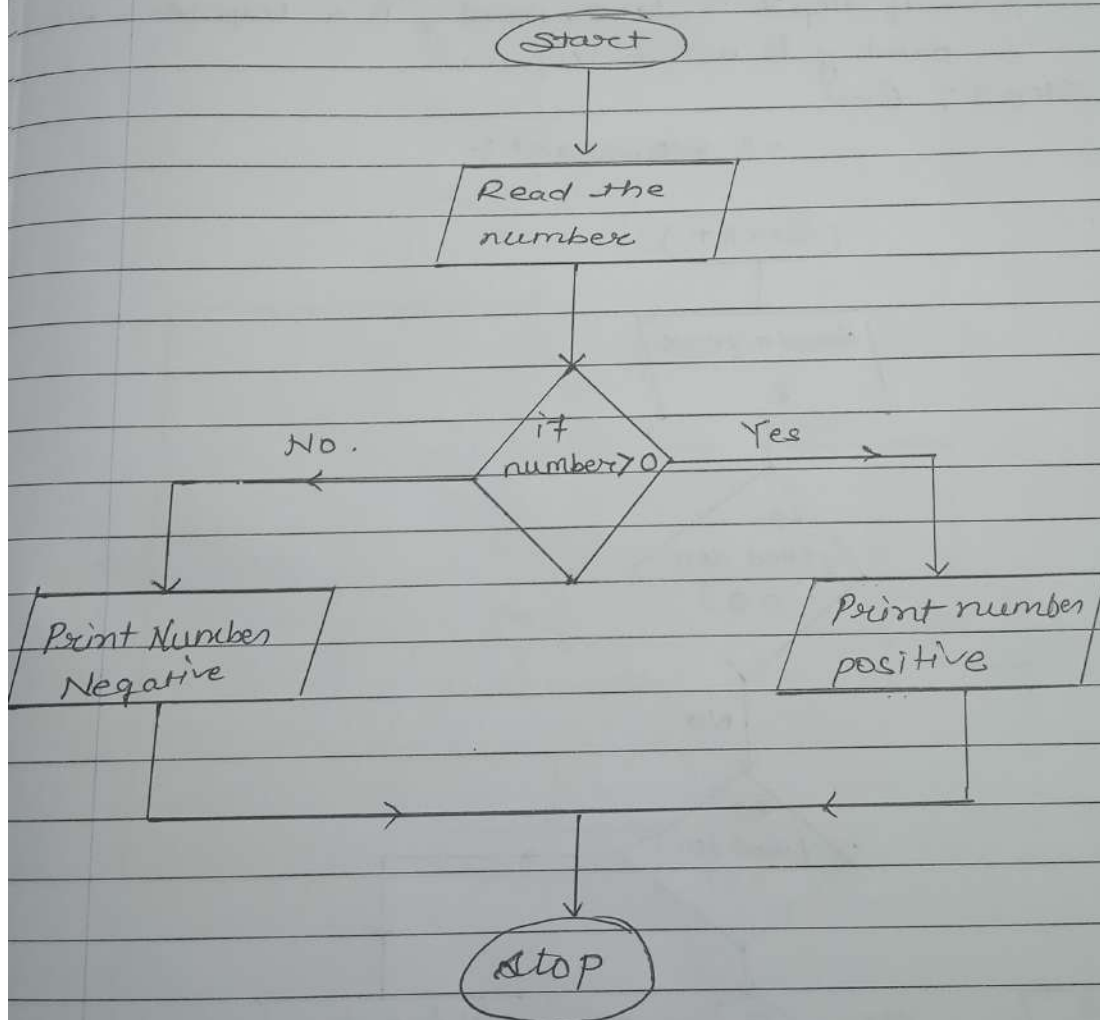 Start
Read the
number
if
number>0
No.
Yes
Print Number
Negative
Print number
positive
Stop